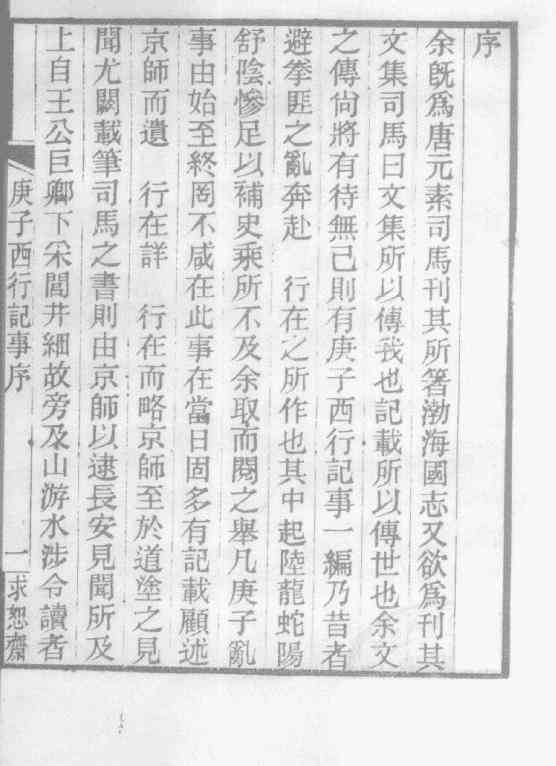 序
余旣爲唐元素司馬刊其所箸渤海國志又欲爲刊其
文集司馬曰文集所以傳我也記載所以傳世也余文
之傳尙將有待無已則有庚子西行記事一編乃昔者
避拳匪之亂奔赴　行在之所作也其中起陸龍蛇陽
舒陰慘足以補史乘所不及余取而閱之舉凡庚子亂
事由始至終罔不咸在此事在當日固多有記載顧述
京師而遺　行在詳　行在而略京師至於道塗之見
聞尤闕載筆司馬之書則由京師以逮長安見聞所及
上自王公巨卿下宷閭井細故旁及山游水涉令讀者
庚子西行記事序　一　求恕齋